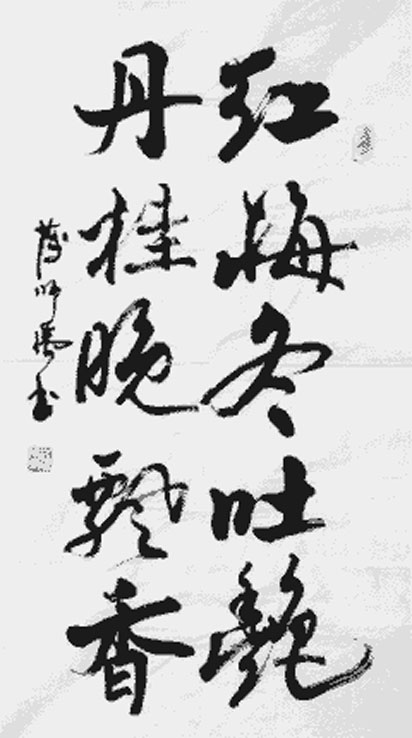 红梅冬吐艷
丹桂晚飘香